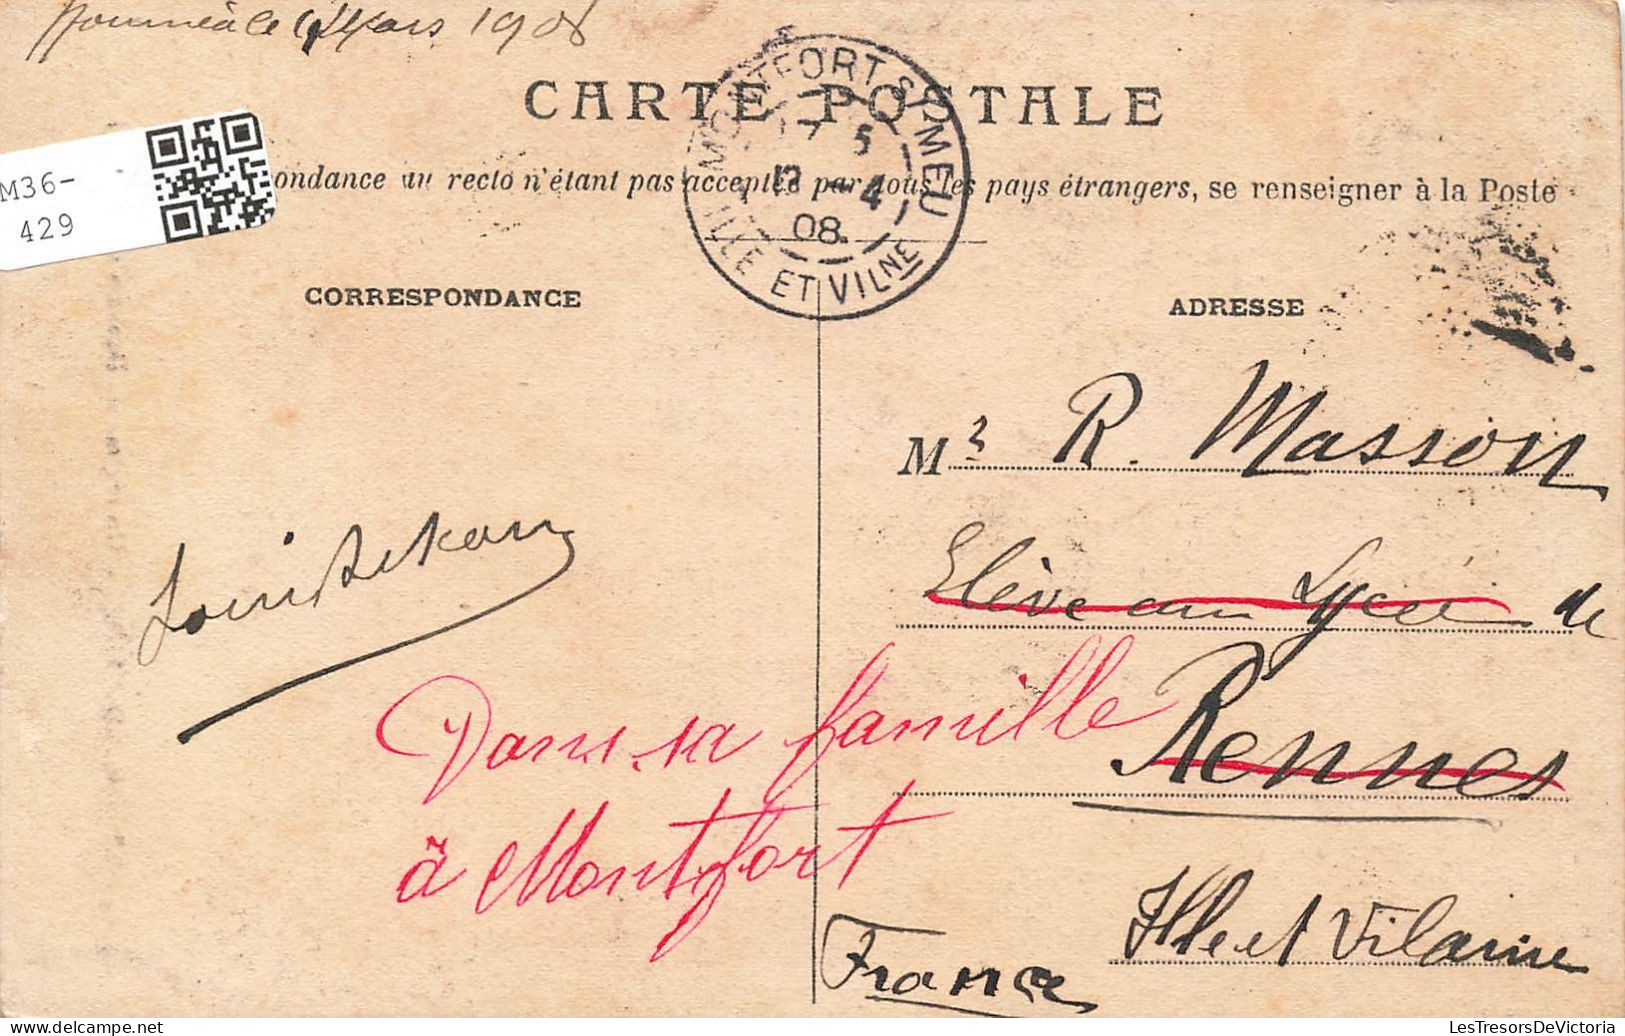 Mars 1908
CARTE POSTALE
ondance au recto n'étant pas acceptée par tous les pays étrangers, se renseigner à la Poste
MONTFORT S. MEU
17 5
12 4
08
ILLE ET VILNE
M36-
429
CORRESPONDANCE
ADRESSE
Mr R. Masson
Elève au Lycée de
Rennes
Ille et Vilaine
France
Louis
Dans sa famille
à Montfort
LesTresorsDeVictoria